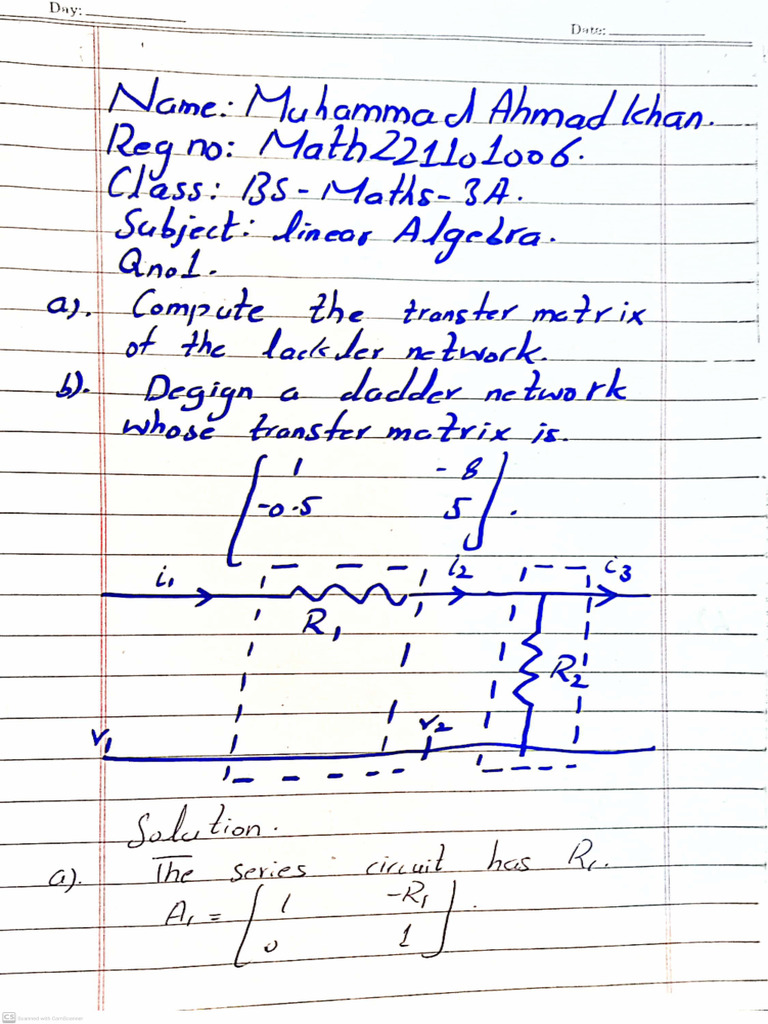 Day:
Date:
Name: Muhammad Ahmad Khan.
Reg no: Math221101006.
Class: BS-Maths-3A.
Subject: linear Algebra.
Qno1.
a). Compute the transfer matrix
of the lackder network.
b). Degign a dadder network
whose transfer matrix is.
1 -8
-0.5 5 .
i1 i2 i3
R1
R2
V1 V2
Solution.
a). The series circuit has R1.
A1 = 1 -R1 .
0 1
CS Scanned with CamScanner